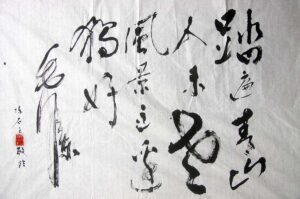 踏遍青山
人未老
風景這邊
獨好
毛澤東